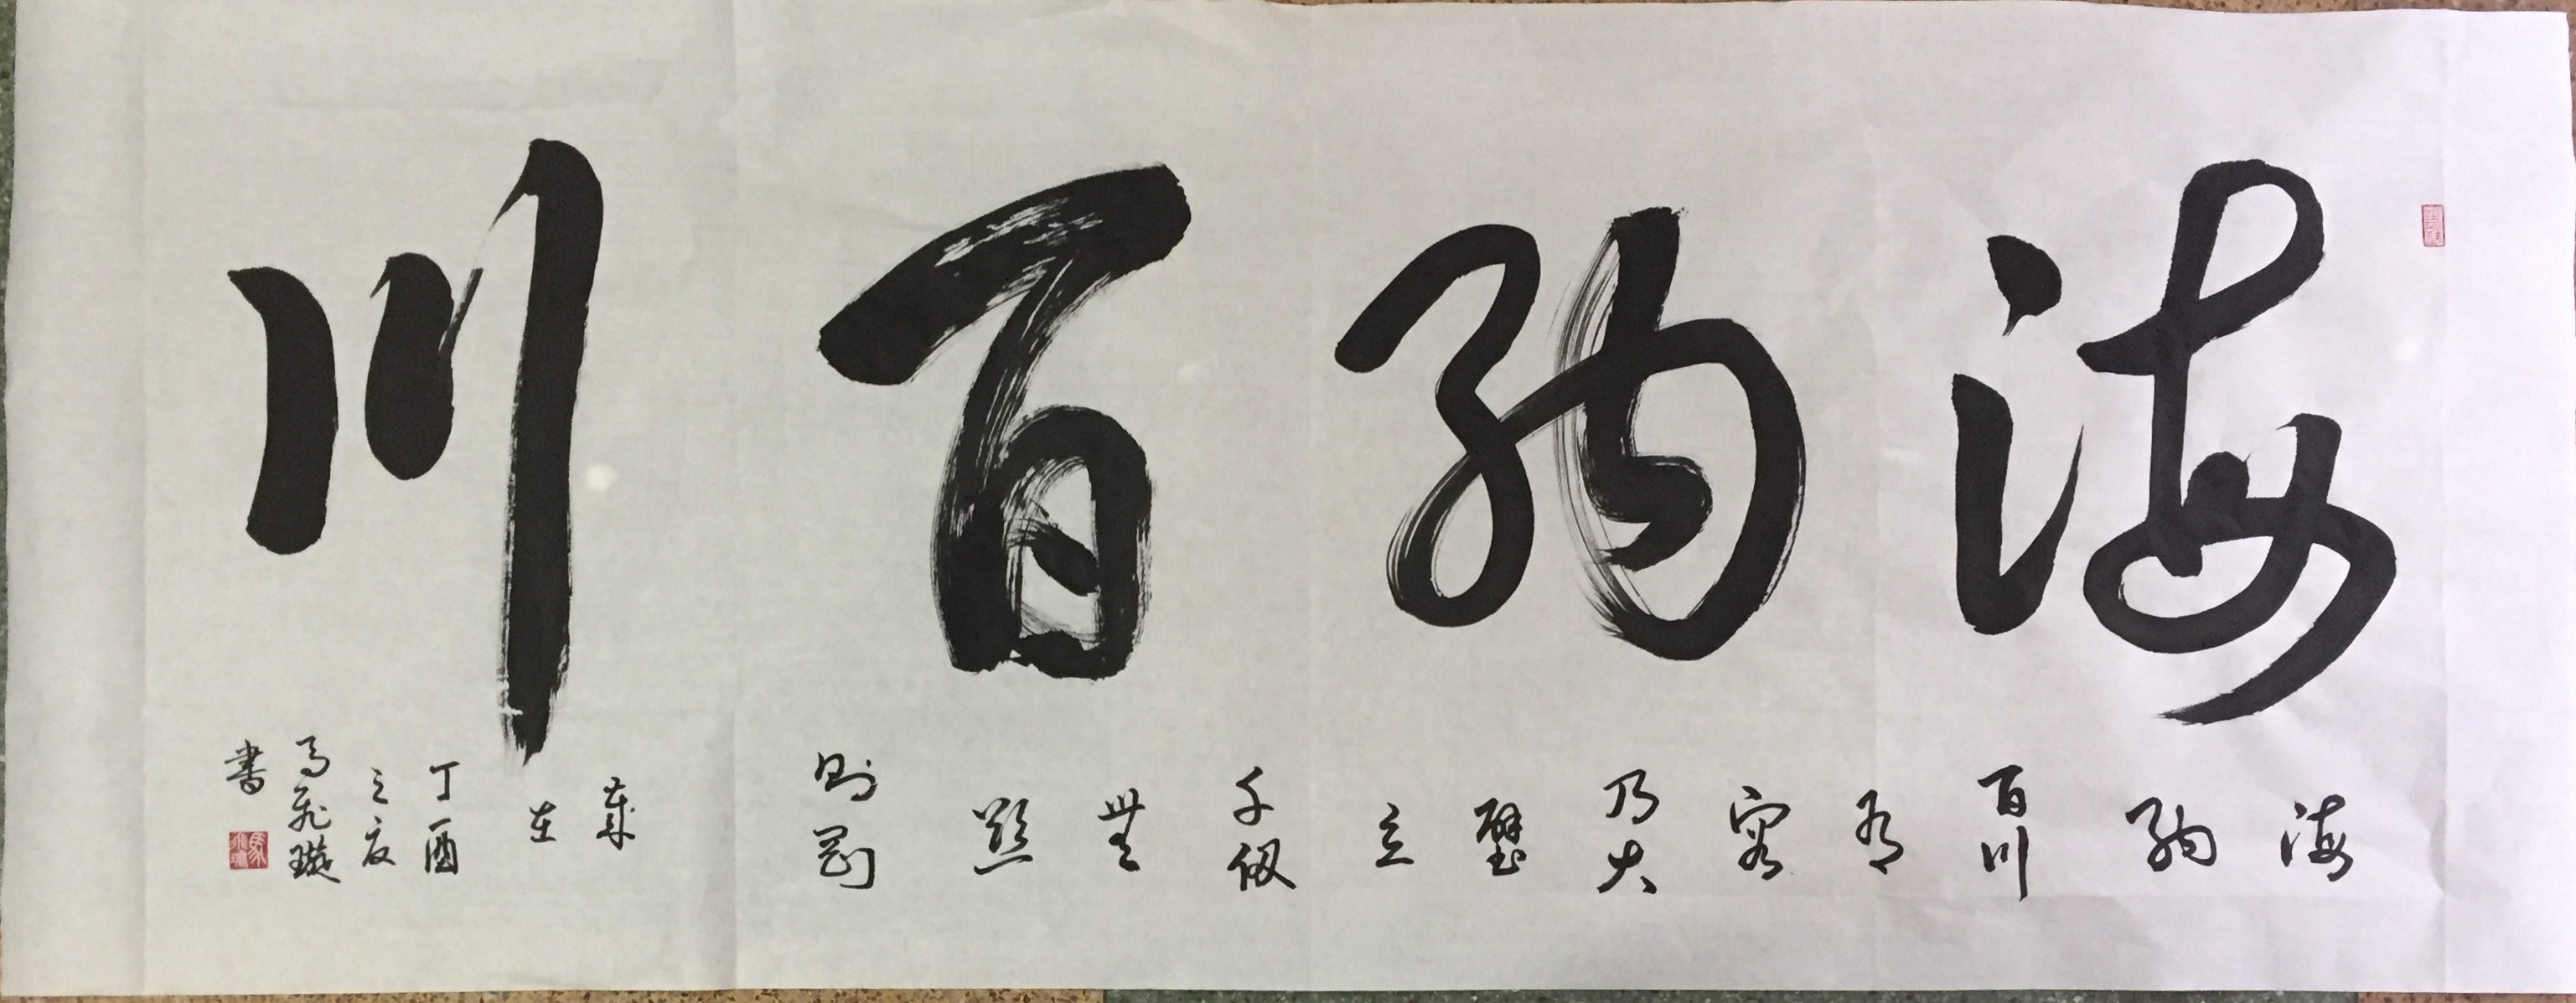 海納百川
海納百川有容乃大壁立千仞無慾則剛
歲在丁酉之夏馬飛璇書